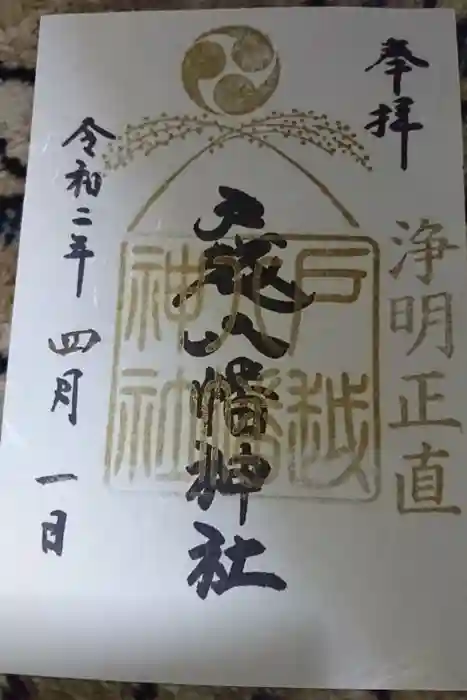 奉拝
浄明正直
戸越八幡神社
戸越
八幡
神社
令和二年 四月 一日